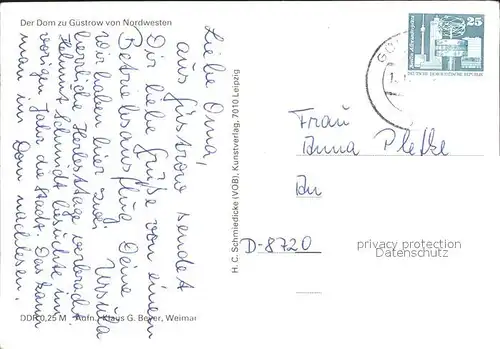 Der Dom zu Güstrow von Nordwesten
Liebe Oma,
aus Güstrow sendet
Dir liebe Grüße von einem
Betriebsausflug Deine
Ursula
Wir haben hier zwei
herrliche Herbsttage verbracht.
Helmut Schmidt besuchte im
vorigen Jahr die Stadt. Das kann
man im Dom nachlesen.
DDR 0,25 M Aufn.: Klaus G. Beyer, Weimar
H. C. Schmiedicke (VOB), Kunstverlag, 7010 Leipzig
25
DEUTSCHE DEMOKRATISCHE REPUBLIK
Frau
Anna
D-8720
privacy protection
Datenschutz